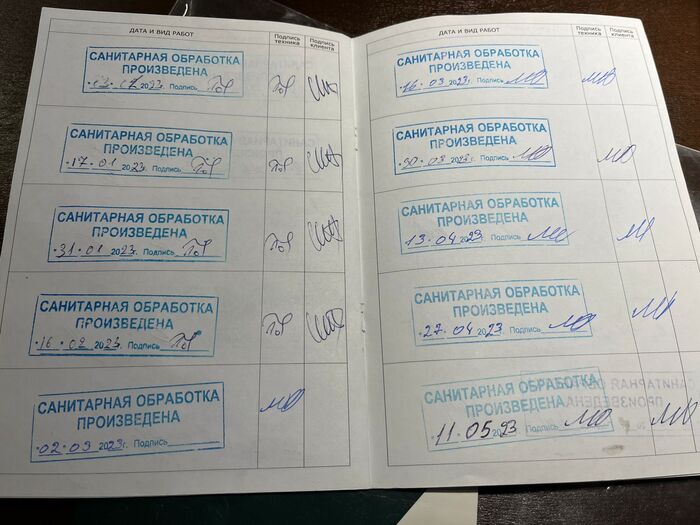 ДАТА И ВИД РАБОТ
Подпись техника
Подпись клиента
САНИТАРНАЯ ОБРАБОТКА
ПРОИЗВЕДЕНА
2023г. Подпись
САНИТАРНАЯ ОБРАБОТКА
ПРОИЗВЕДЕНА
17.01 2023г. Подпись
САНИТАРНАЯ ОБРАБОТКА
ПРОИЗВЕДЕНА
31.01 2023г. Подпись
САНИТАРНАЯ ОБРАБОТКА
ПРОИЗВЕДЕНА
16.02 2023г. Подпись
САНИТАРНАЯ ОБРАБОТКА
ПРОИЗВЕДЕНА
02.03 2023г. Подпись
ДАТА И ВИД РАБОТ
Подпись техника
Подпись клиента
САНИТАРНАЯ ОБРАБОТКА
ПРОИЗВЕДЕНА
16.03 2023г. Подпись
САНИТАРНАЯ ОБРАБОТКА
ПРОИЗВЕДЕНА
30.03 2023г. Подпись
САНИТАРНАЯ ОБРАБОТКА
ПРОИЗВЕДЕНА
13.04 2023г. Подпись
САНИТАРНАЯ ОБРАБОТКА
ПРОИЗВЕДЕНА
27.04 2023г. Подпись
САНИТАРНАЯ ОБРАБОТКА
ПРОИЗВЕДЕНА
11.05 2023г. Подпись